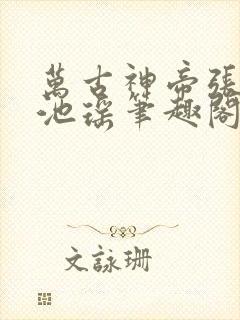 萬古神帝張
池瑤筆趣閣
文詠珊